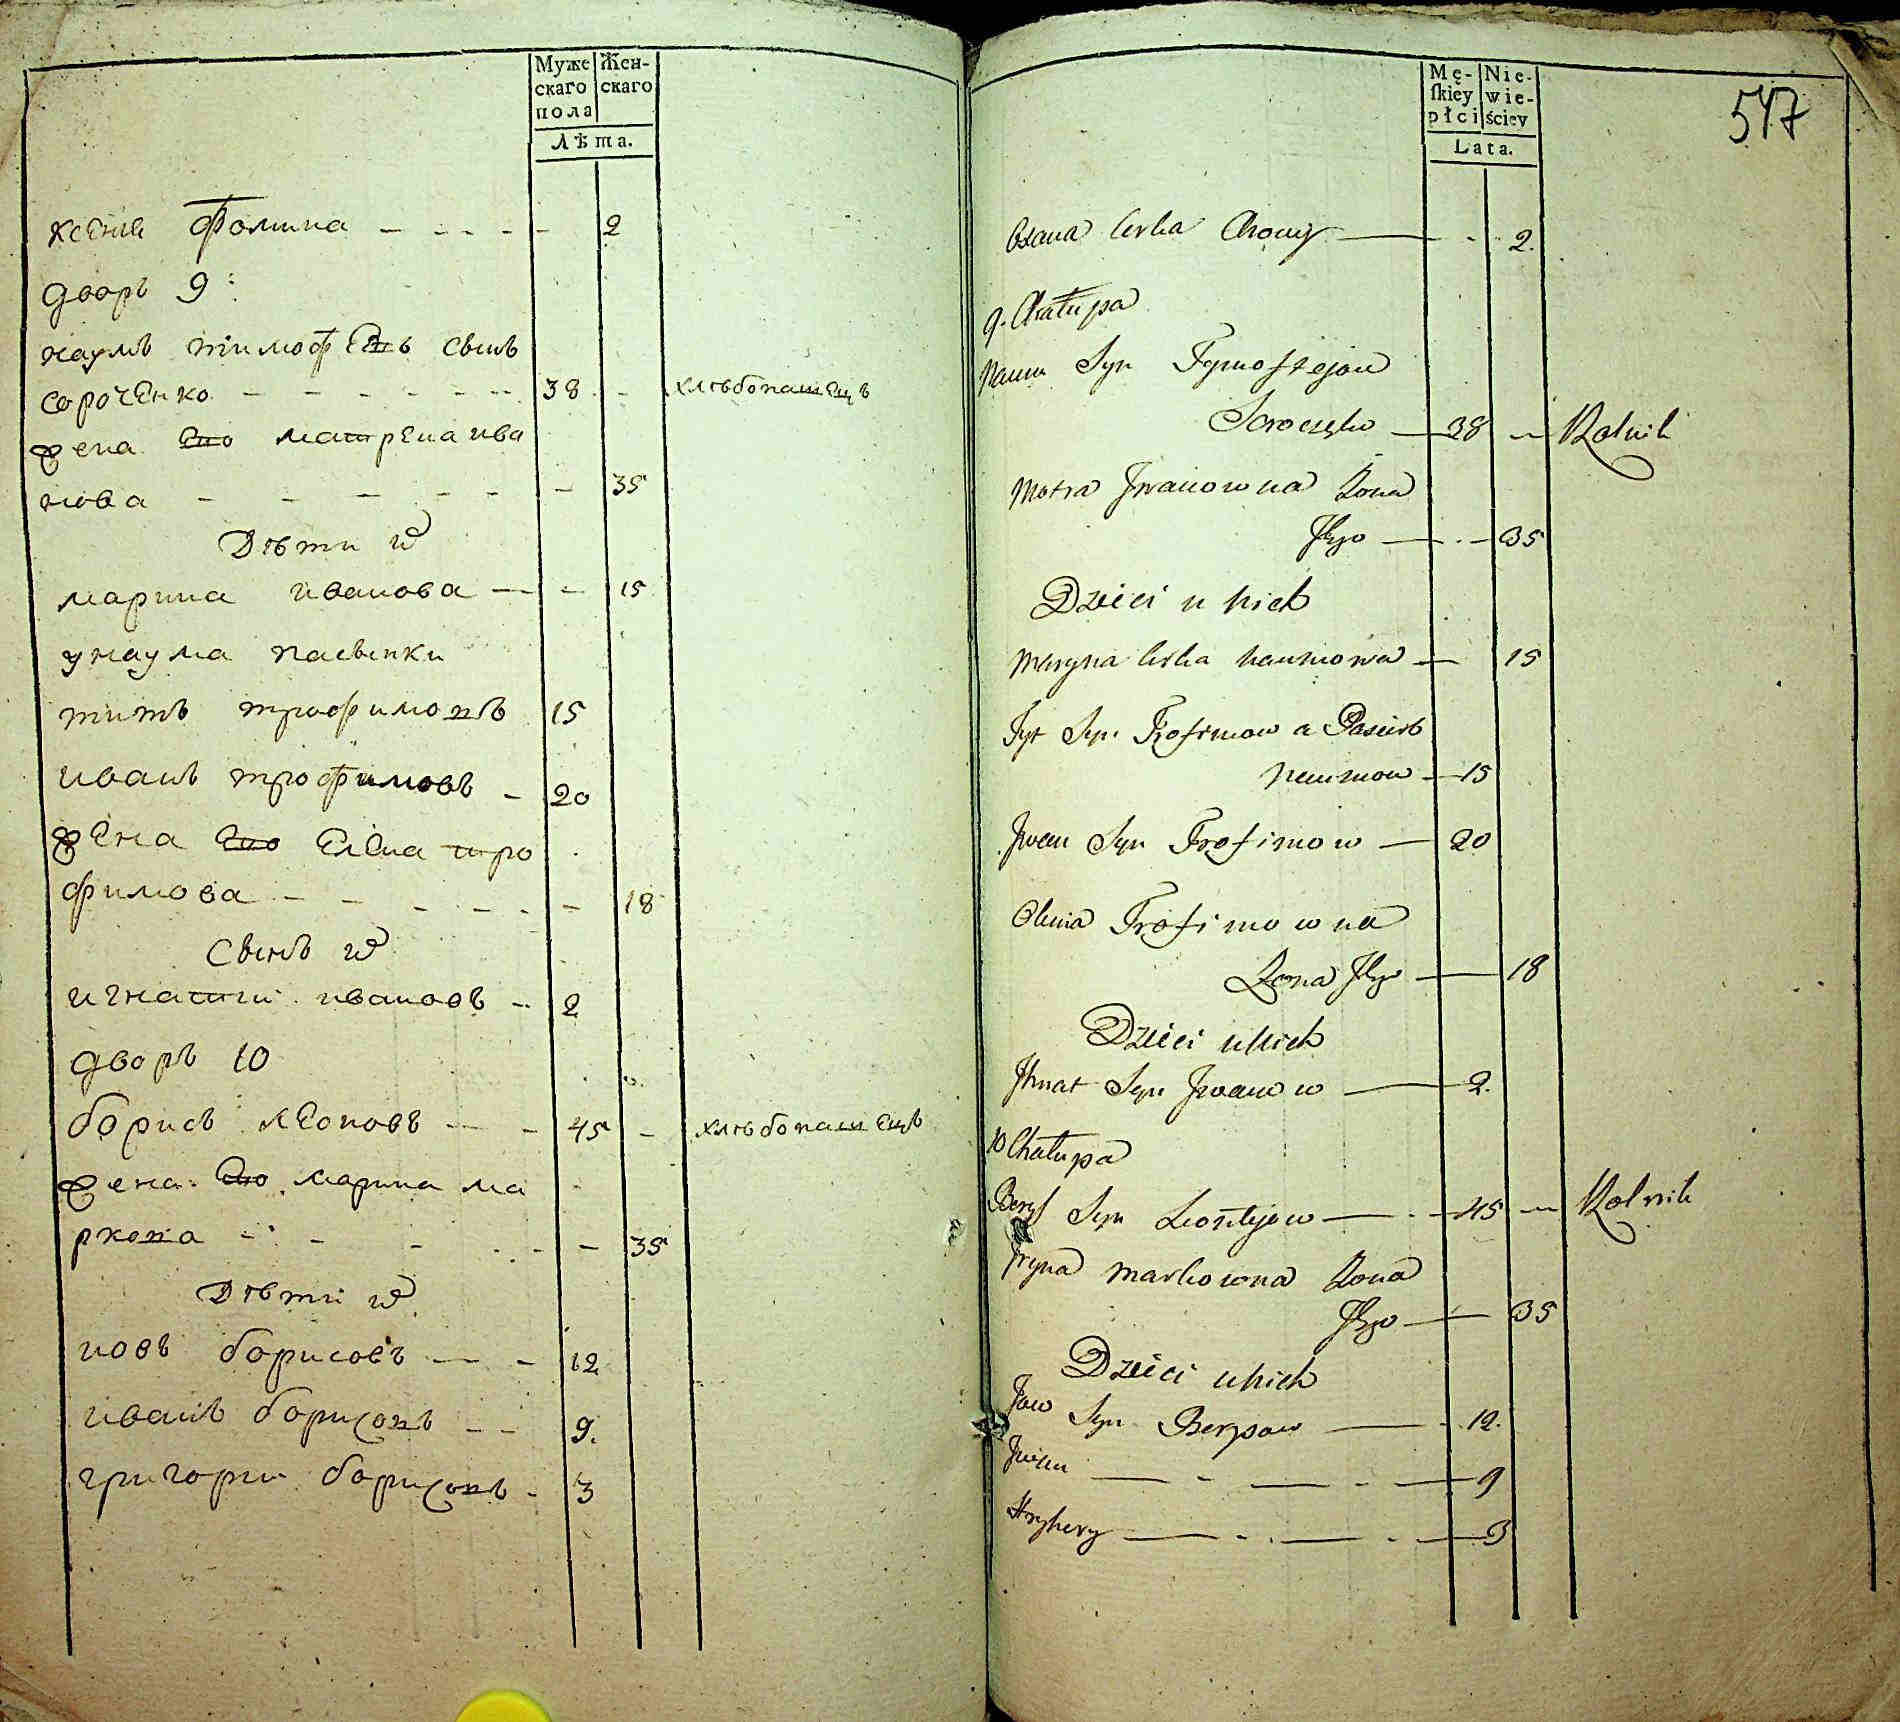 Муже скаго пола
Жен- скаго
Лѣта.
ксения Фомина — — — — 2
дворъ 9:
наумъ тимофЕевъ сынъ
сорочЕнко — — — — — 38 — хлѣбопашецъ
жена Его матрена ива
нова — — — — — — 35
Дѣти их
марина иванова — — 15
у наума пасынки
титъ трофимовъ 15
иванъ трофимовъ — 20
жЕна Его ЕлЕна тро
фимова — — — — — — 18
сынъ их
игнатии ивановъ — 2
дворъ 10
борисъ лЕоновъ — — 45 — хлѣбопашЕцъ
жена Его марина ма
ркова — — — — — — 35
Дѣти их
иовъ борисовъ — — 12
иванъ борисовъ — — 9.
григории борисовъ — 3
Mę- ſkiey płci
Nie- wie- ściey
Lata.
547
Oxana Corka Chomy — 2.
9. Chałupa
Naum Syn Tymofiejow
Soroczko — 38 — Rolnik
Motra Jwanowna Zona
Jego — 35
Dzieci u nich
Maryna Corka naumowa — 15
Tyt Syn Trofimow a Pasierb
naumow — 15
Jwan Syn Trofimow — 20
Olena Trofimowna
Zona Jego — 18
Dzieci u nich
Jhnat Syn Jwanow — 2.
10 Chałupa
Borys Syn Leontejow — 45 — Rolnik
Jryna markowna Zona
Jego — 35
Dzieci u nich
Jow Syn Borysow — 12.
Jwan — — — — 9
Hryhory — — — — 3